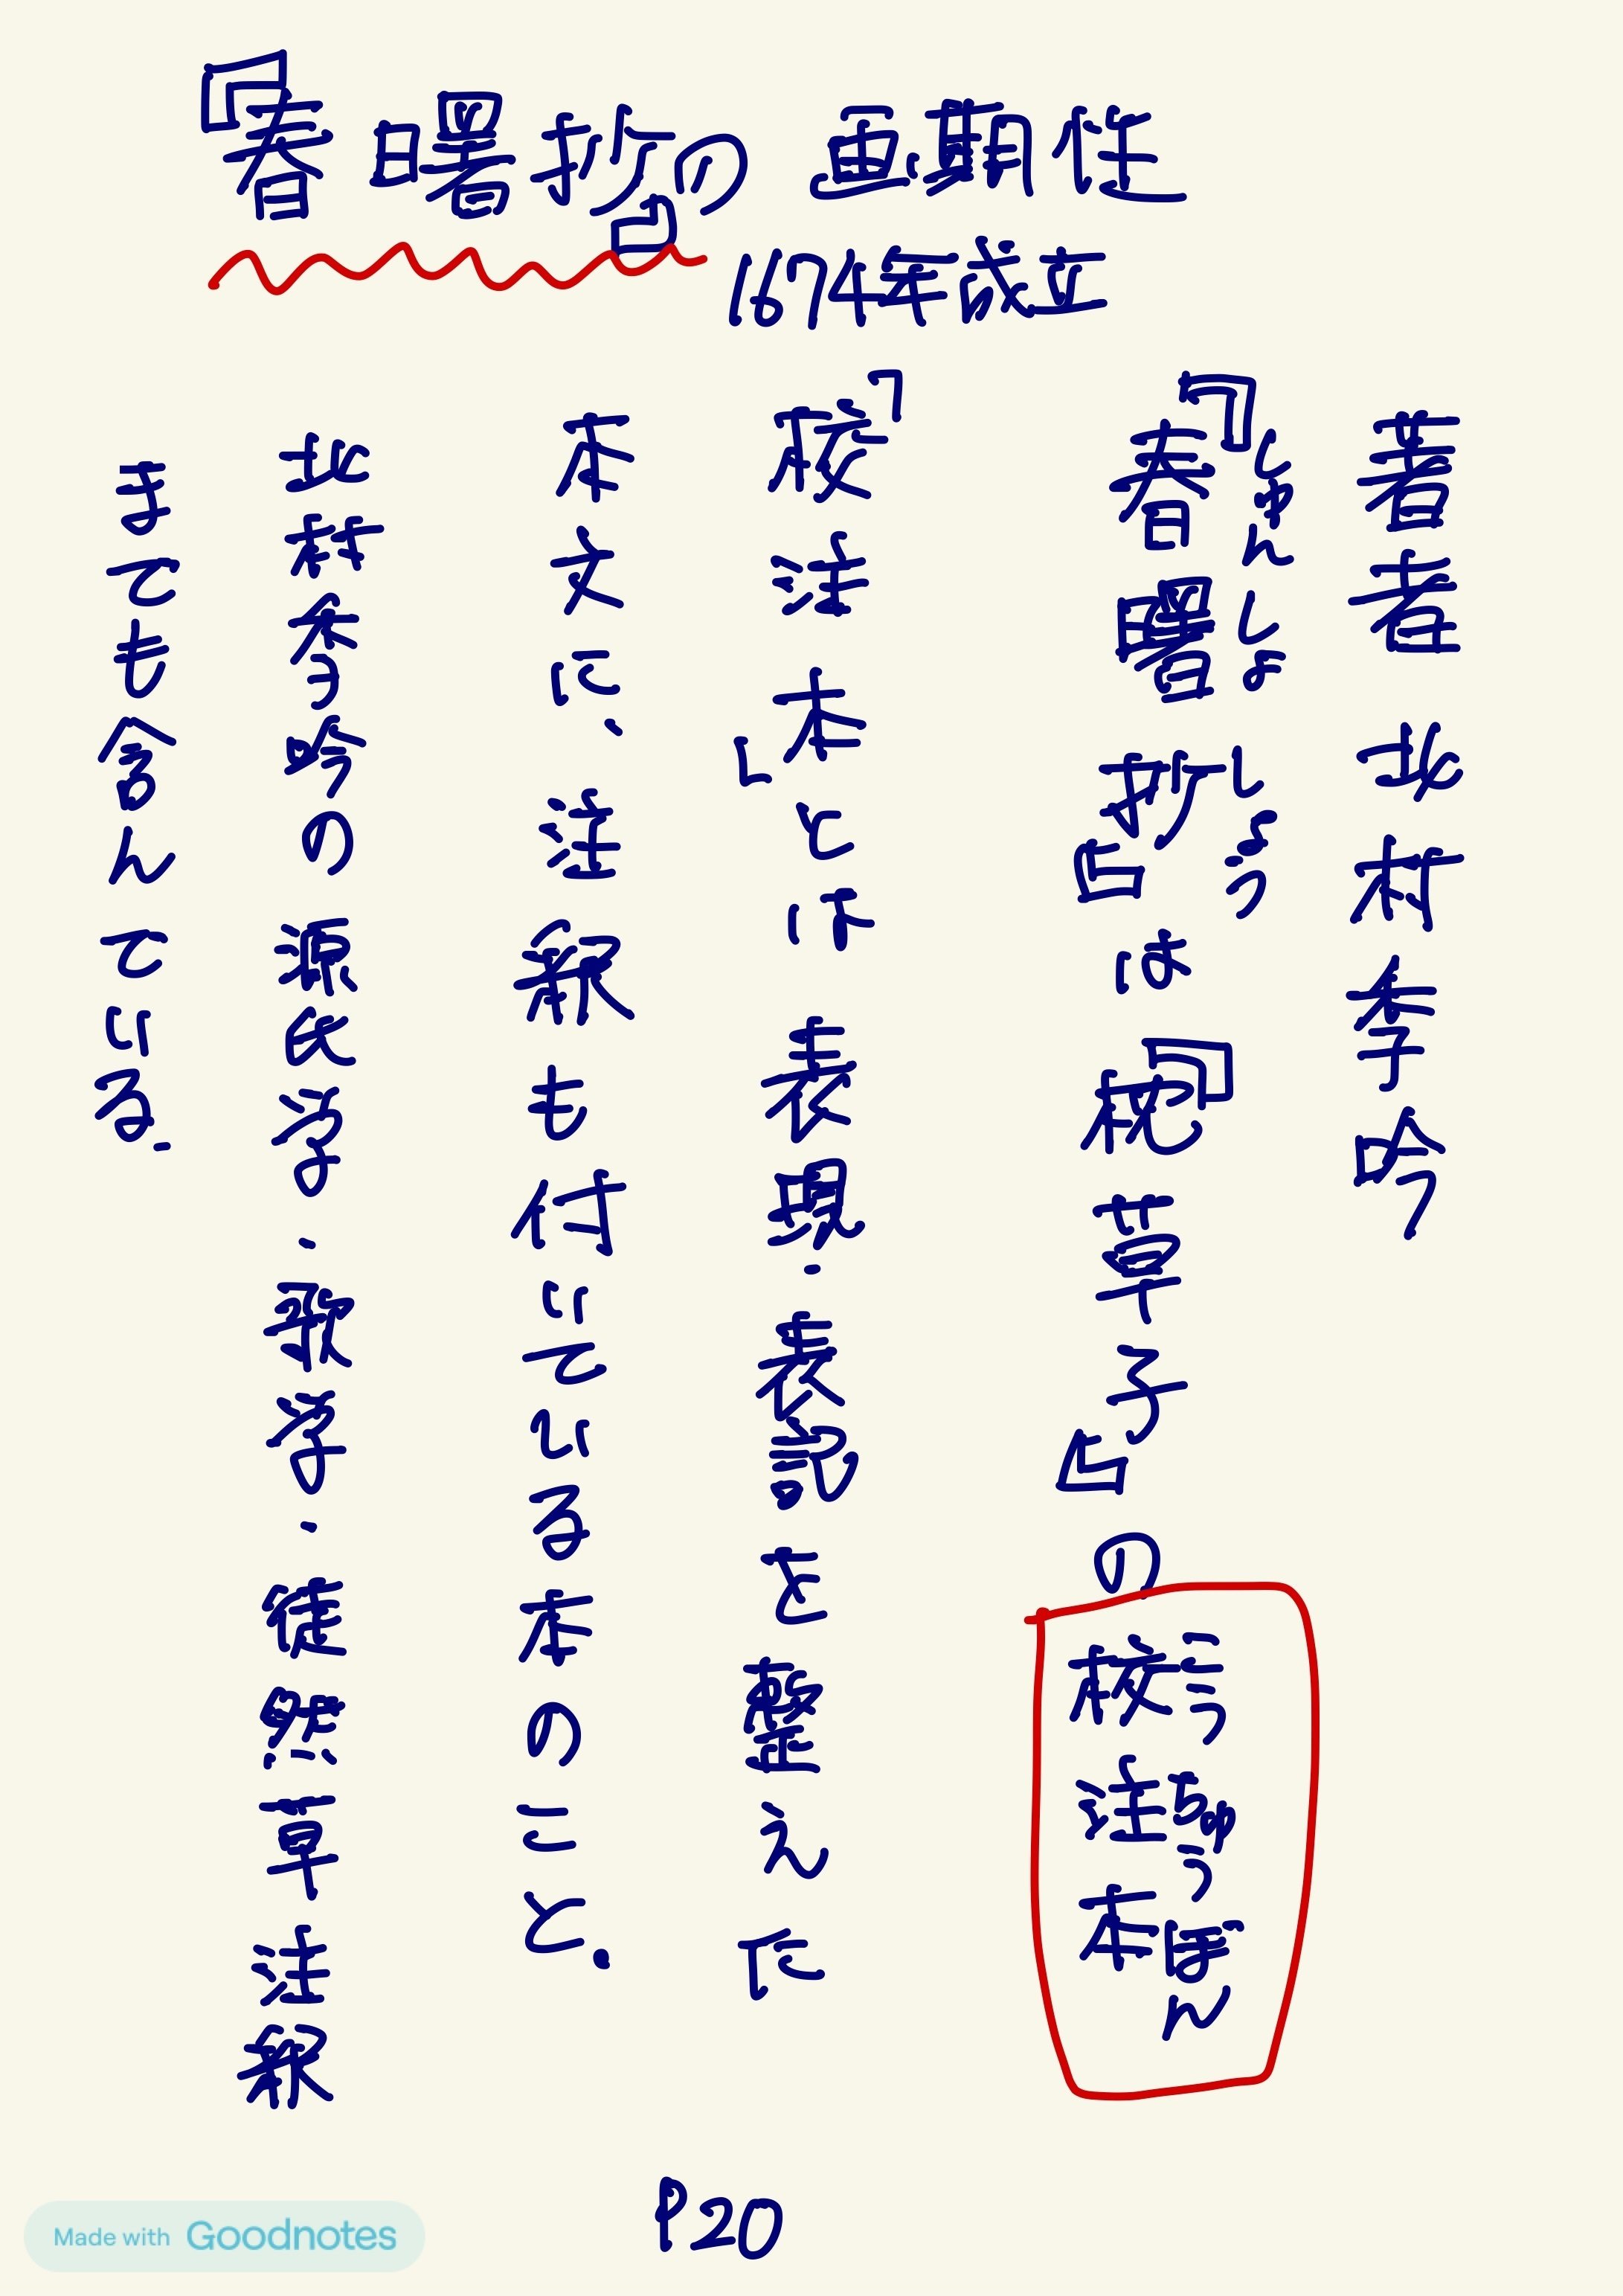 『春曙抄』の画期性
1674年成立
著者 北村季吟
『春曙抄』は『枕草子』の校注本
しゅんしょ しょう
こうちゅうぼん
「校注本」とは表現・表記を整えた
本文に、注釈も付いている本のこと。
北村季吟の源氏学・歌学・徒然草注釈
までも含んでいる。
P20
Made with Goodnotes